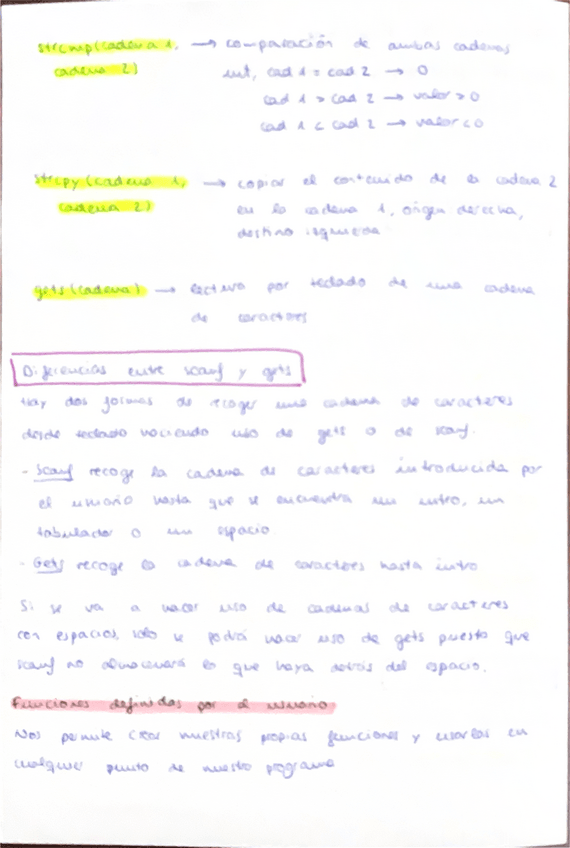 strcmp(cadena 1, → comparación de ambas cadenas
cadena 2) int, cad 1 = cad 2 → 0
cad 1 > cad 2 → valor > 0
cad 1 < cad 2 → valor < 0
strcpy (cadena 1, → copiar el contenido de la cadena 2
cadena 2) en la cadena 1, origen derecha,
destino izquierda
gets (cadena) → lectura por teclado de una cadena
de caracteres
Diferencias entre scanf y gets
Hay dos formas de recoger una cadena de caracteres
desde teclado haciendo uso de gets o de scanf.
- Scanf recoge la cadena de caracteres introducida por
el usuario hasta que se encuentra un intro, un
tabulador o un espacio
- Gets recoge la cadena de caracteres hasta intro
Si se va a hacer uso de cadenas de caracteres
con espacios, solo se podrá hacer uso de gets puesto que
scanf no almacenará lo que haya detrás del espacio.
Funciones definidas por el usuario
Nos permite crear nuestras propias funciones y usarlas en
cualquier punto de nuestro programa